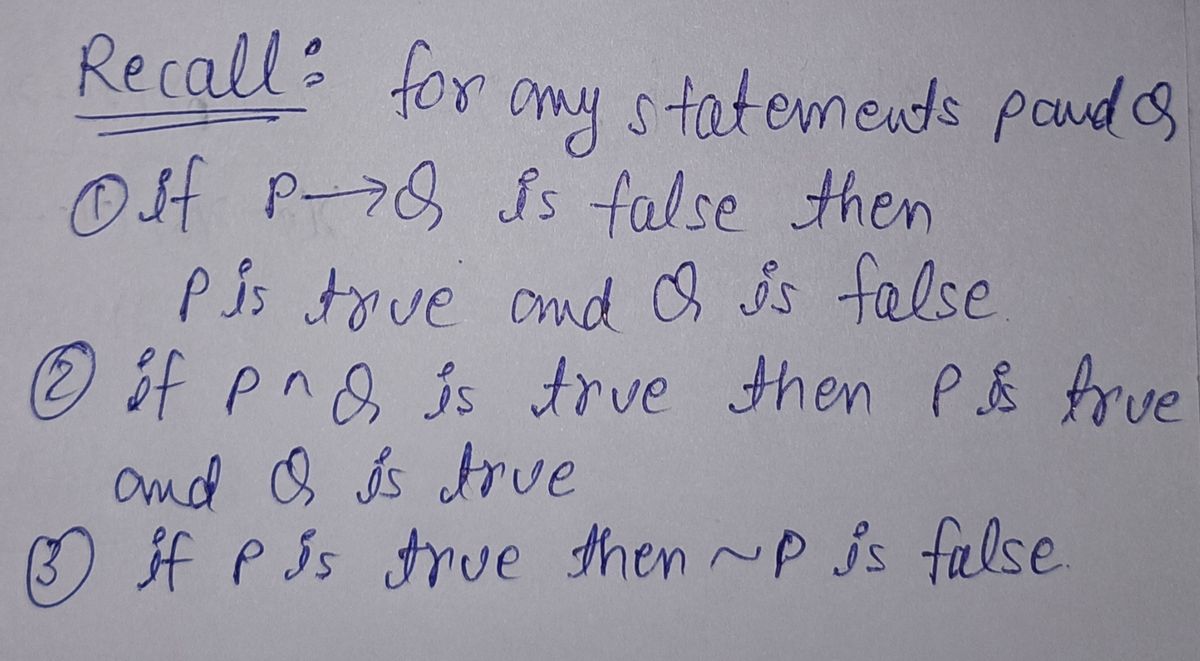 Recall: for any statements P and Q
① if P→Q is false then
P is true and Q is false.
② if P∧Q is true then P is true
and Q is true
③ if P is true then ~P is false.